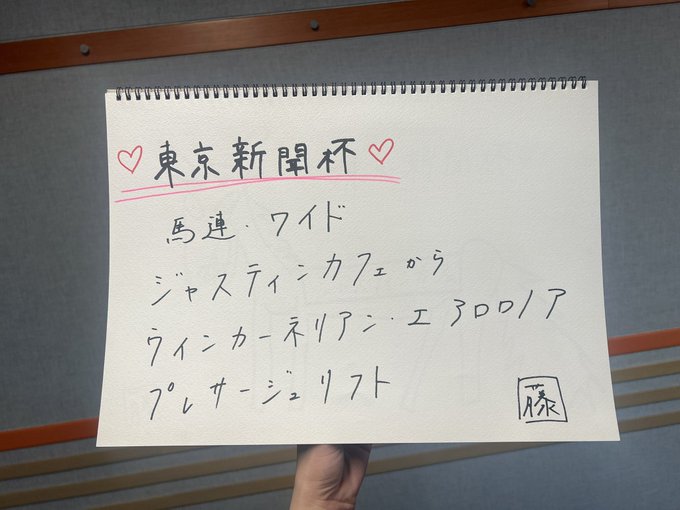 ♡東京新聞杯♡
馬連・ワイド
ジャスティンカフェから
ウィンカーネリアン・エアロロノア
プレサージュリフト
藤